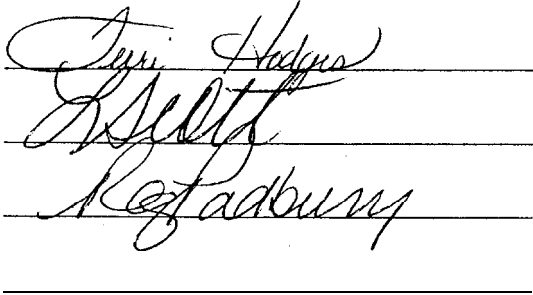 Teri Hodges
L Scott
Reg Padbury